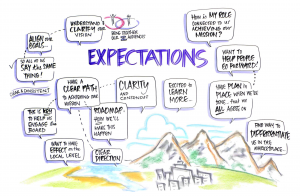 UNDERSTANDING
CLARITY OUR
VISION
BRING TOGETHER
OUR AUDIENCES
ALIGN OUR
GOALS...
SO ALL OF US
SAY THE SAME
THING!
CLEAR & CONSISTENT
EXPECTATIONS
HOW IS MY ROLE
CONNECTED TO US
ACHIEVING OUR
MISSION?
WANT TO
HELP PEOPLE
GO FORWARD!
HAVE A
CLEAR PATH
TO ADDRESSING OUR
MISSION
CLARITY
AND
CONSENSUS
EXCITED TO
LEARN
MORE...
HAVE PLAN IN
PLACE WHEN WE'RE
DONE, THAT WE
ALL AGREE ON
THIS IS KEY
TO HELP US
ENGAGE THE
BOARD
ROADMAP:
HOW WE'LL
MAKE THIS
HAPPEN
WANT TO HAVE
EFFECT ON THE
LOCAL LEVEL
CLEAR
DIRECTION
FIND WAY TO
DIFFERENTIATE
US IN THE
MARKETPLACE.